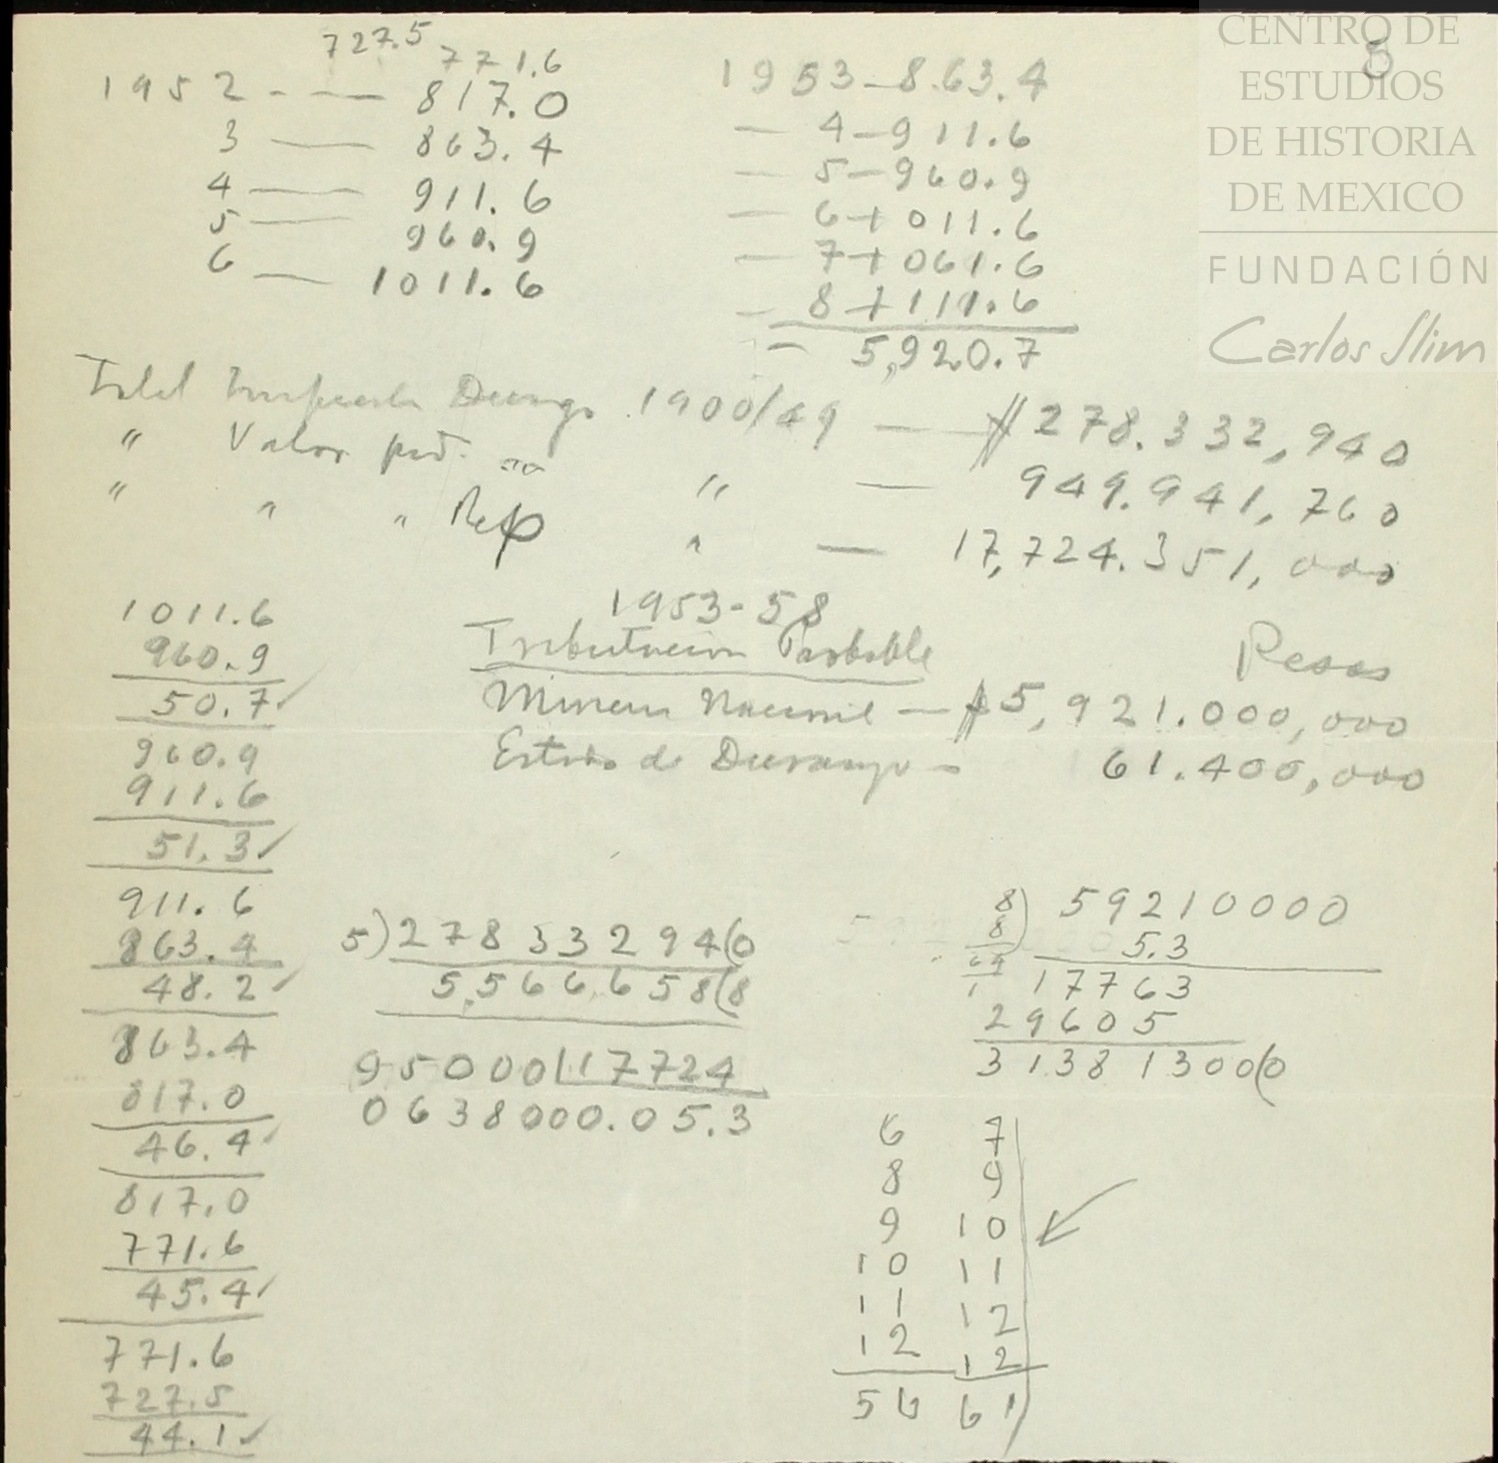 727.5
771.6
1952 - — — 817.0
3 — — 863.4
4 — — 911.6
5 — — 960.9
6 — 1011.6
8
1953—863.4
— 4—911.6
— 5—960.9
— 6—1011.6
— 7—1061.6
— 8—1111.6
— 5,920.7
CENTRO DE
ESTUDIOS
DE HISTORIA
DE MEXICO
FUNDACIÓN
Carlos Slim
Total Durango 1900/49 — $278.332,940
" Valor " — 949.941,760
" " " Rep " — 17,724.351,000
1011.6
960.9
50.7✓
960.9
911.6
51.3✓
911.6
863.4
48.2✓
863.4
817.0
46.4✓
817.0
771.6
45.4✓
771.6
727.5
44.1✓
1953-58
Tributacion Probable
Pesos
Mineria Nacional — $5,921.000,000
Estado de Durango — 61.400,000
5)27833294(0
5,566,658(8
95000|17724
0638000.05.3
8) 59210000
8 5.3
64
1 17763
29605
313813000(0
6 7
8 9
9 10
10 11
11 12
12 12
56 61